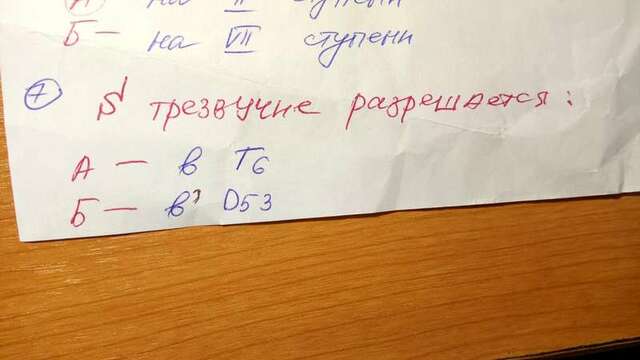 А — на II ступени
Б — на VII ступени
7 S трезвучие разрешается:
А — в T6
Б — в D53